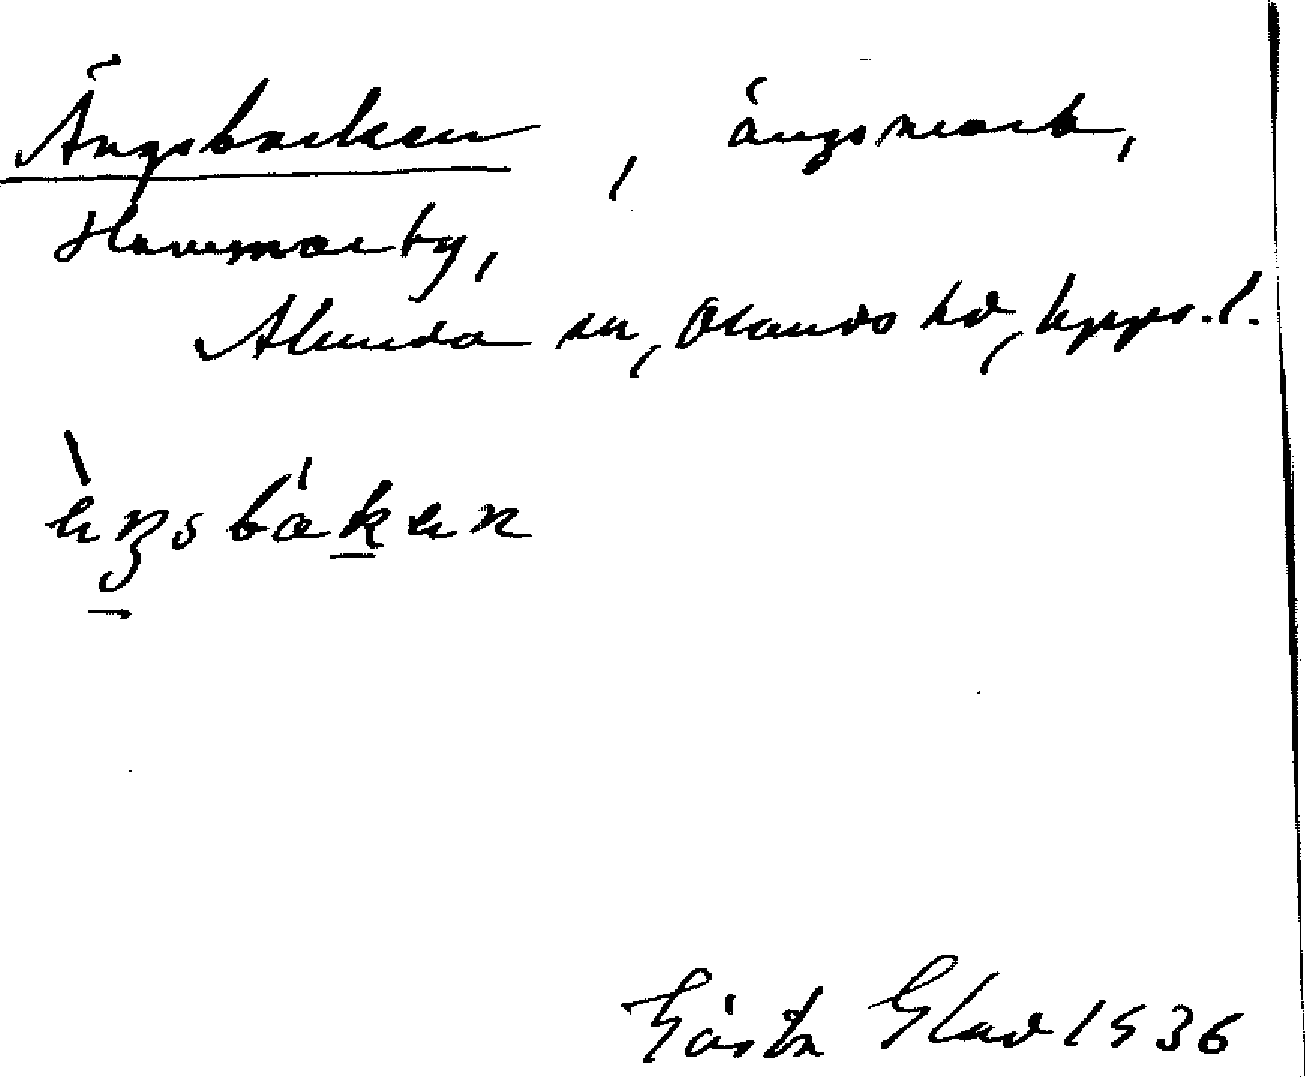 Ängsbacken, ängsmark,
Hammarby,
Alunda sn, Olands hd, Upps. l.
ὲŋsbákɛn
Gösta Glad 1936